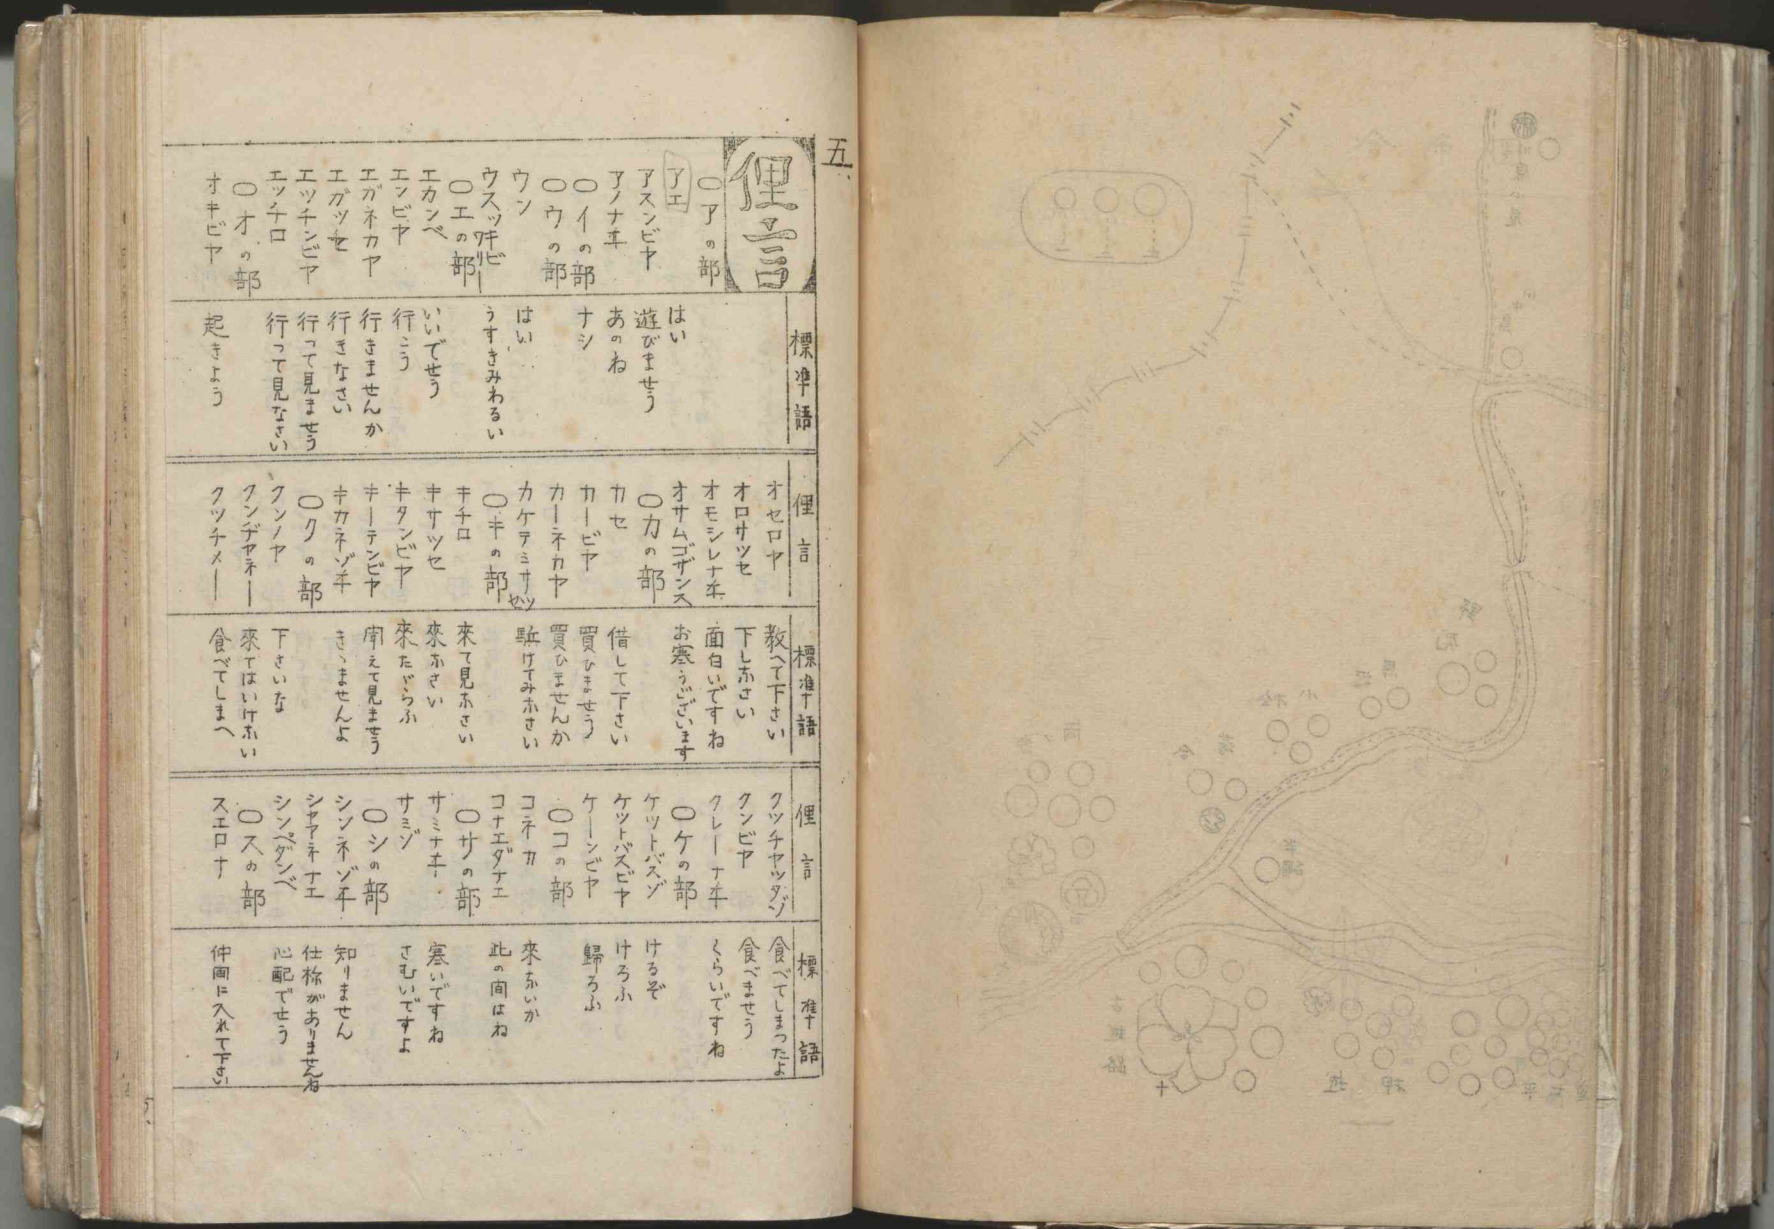 五、
俚言
標準語
○アの部
アエ
はい
アスンビヤ
遊びませう
アノナヰ
あのね
○イの部
ナシ
○ウの部
ウン
はい
ウスッキビワリー
うすきみわるい
○エの部
エカンベ
いいでせう
エンビヤ
行こう
エガネカヤ
行きませんか
エガッセ
行きなさい
エッチンビヤ
行って見ませう
エッチロ
行って見なさい
○オの部
オキビヤ
起きよう
俚言
標準語
オセロヤ
教へて下さい
オロサッセ
下しなさい
オモシレナヰ
面白いですね
オサムゴザンス
お寒うございます
○カの部
カセ
借して下さい
カービヤ
買ひませう
カーネカヤ
買ひませんか
カケテミサッセ
駈けてみなさい
○キの部
キチロ
來て見なさい
キサッセ
來なさい
キタンビヤ
來ただらふ
キーテンビヤ
聞えて見ませう
キカネゾヰ
きゝませんよ
○クの部
クンノヤ
下さいな
クンヂヤネー
來てはいけない
クッチメー
食べてしまへ
俚言
標準語
クッチヤッタゾ
食べてしまつたよ
クンビヤ
食べませう
クレーナヰ
くらいですね
○ケの部
ケットバスゾ
けるぞ
ケットバスビヤ
けろふ
ケーンビヤ
歸ろふ
○コの部
コネカ
來ないか
コナエダナエ
此の間はね
○サの部
サミナヰ
寒いですね
サミゾ
さむいですよ
○シの部
シンネゾヰ
知りません
シヤアネナエ
仕様がありませんね
シンペダンベ
心配でせう
○スの部
スエロナ
仲間に入れて下さい